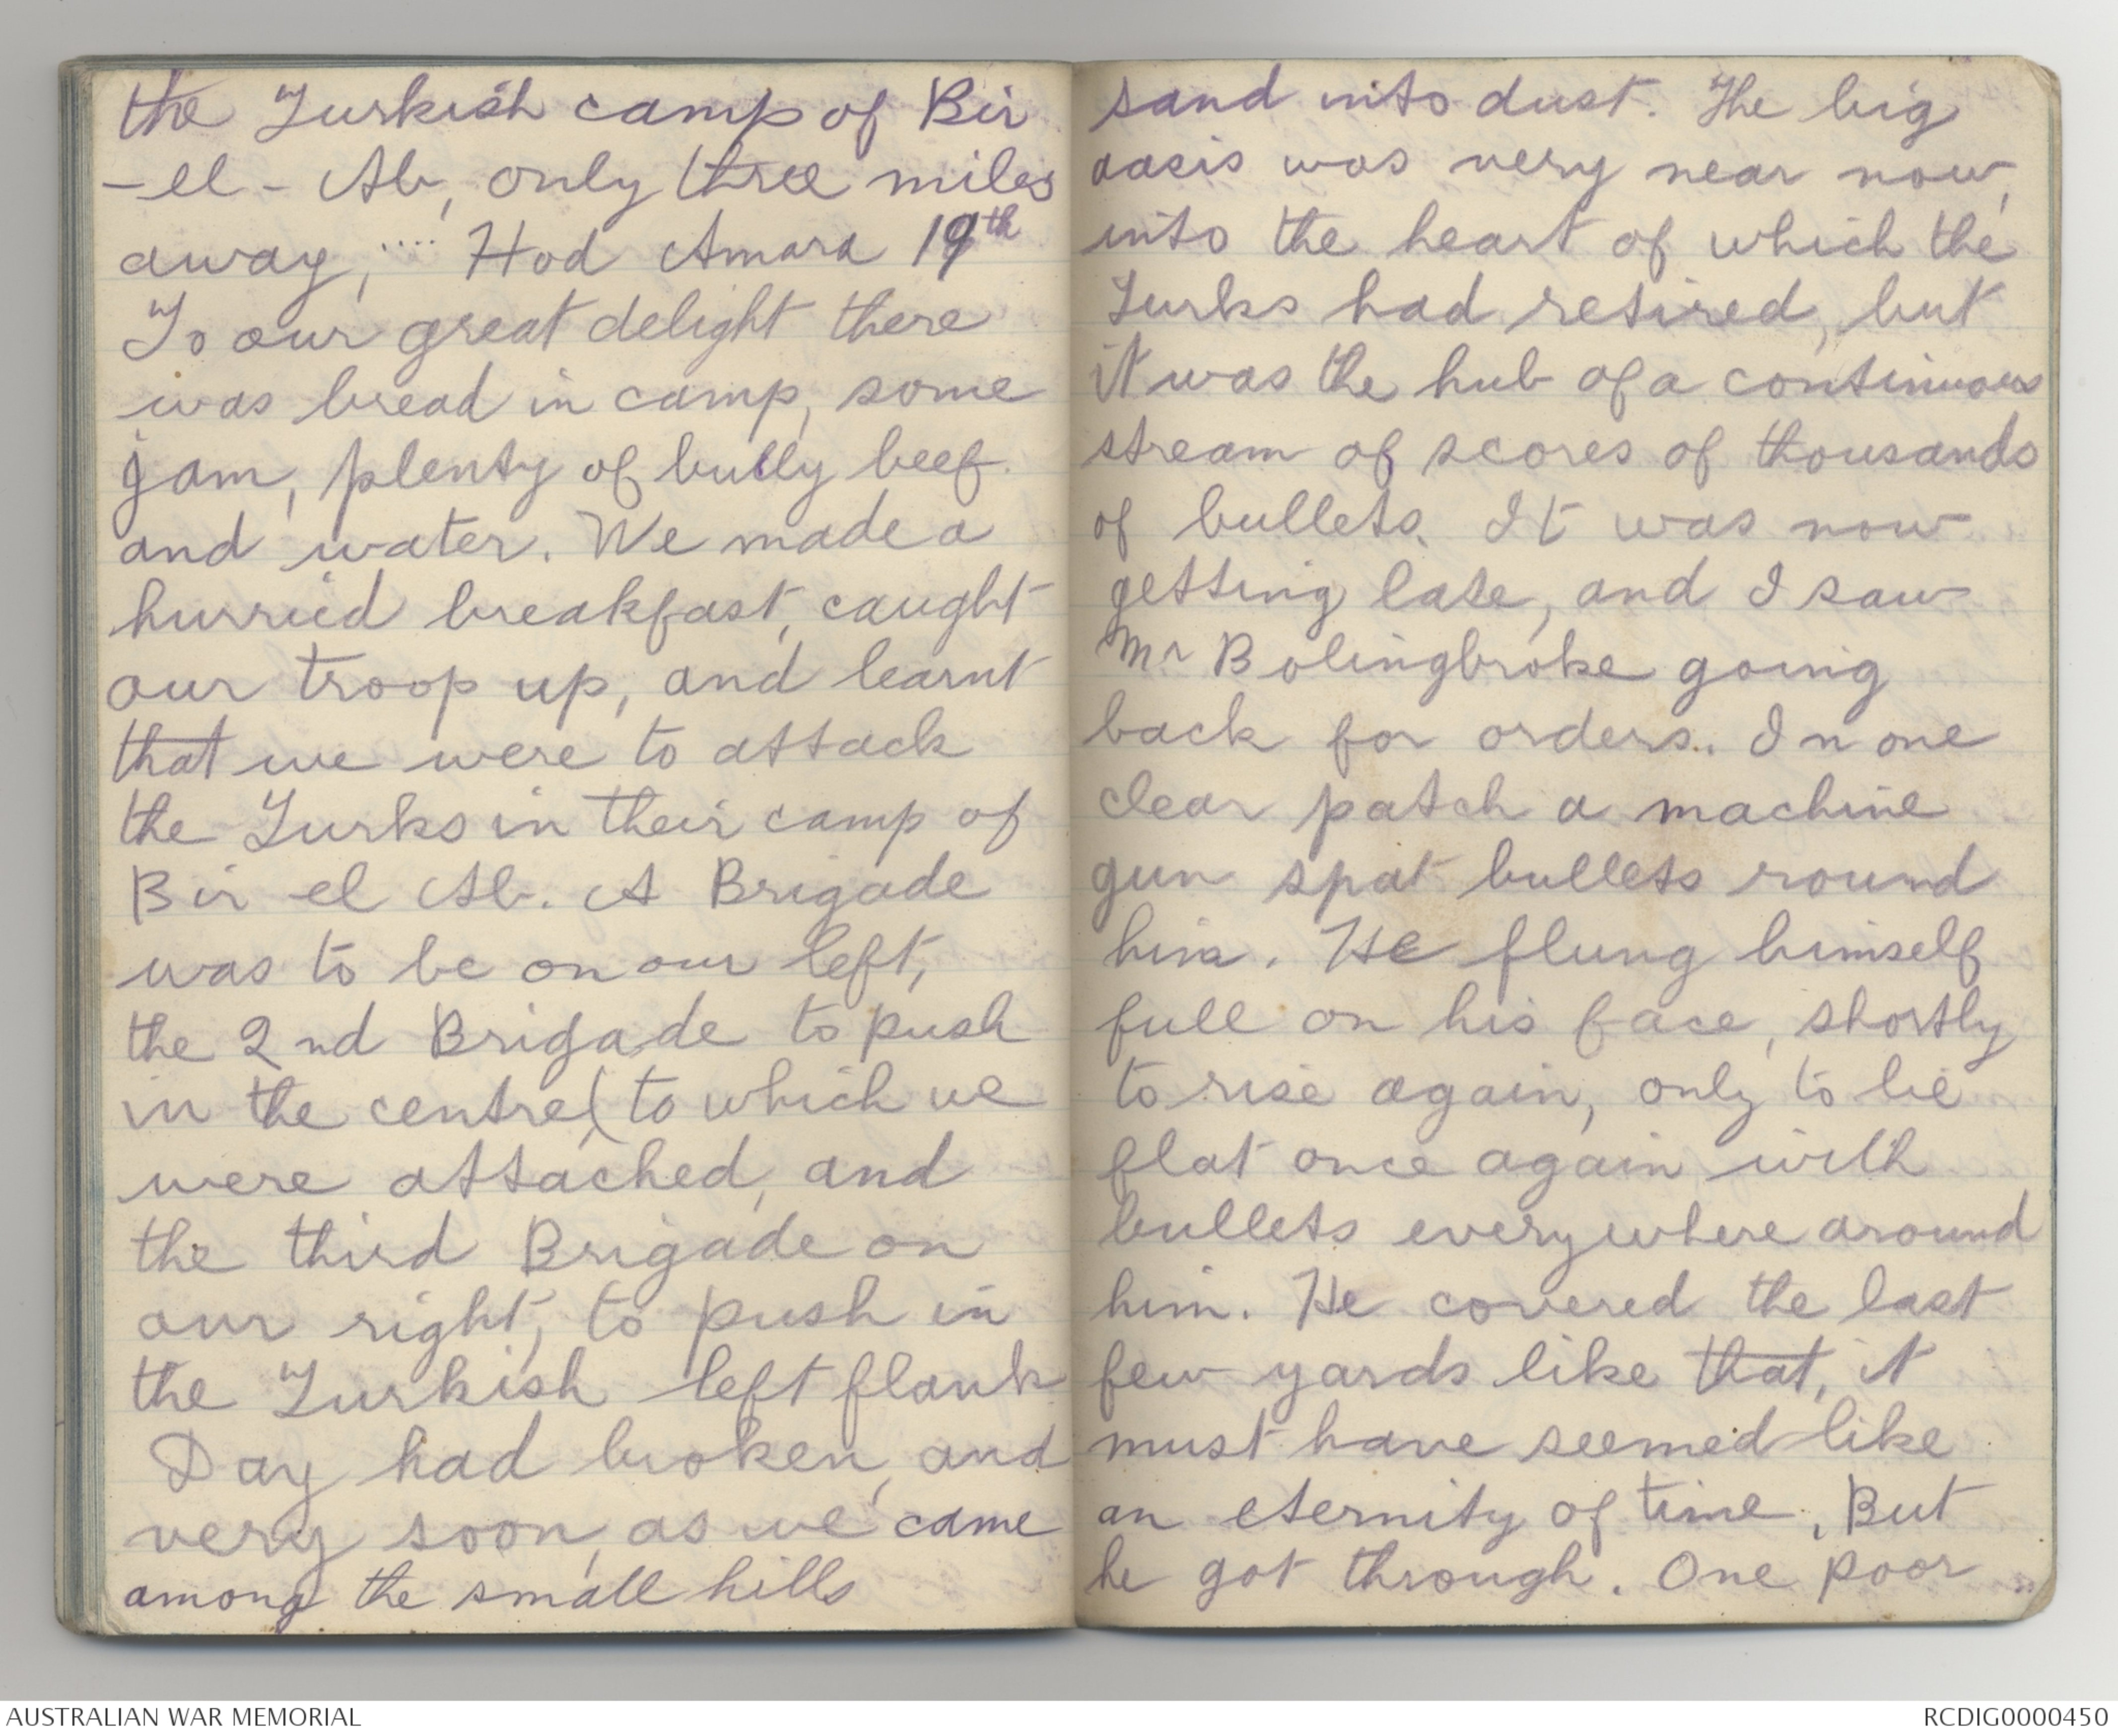 the Turkish camp of Bir
- el - Ab, only three miles
away, .... Hod Amara 19th
To our great delight there
was bread in camp, some
jam, plenty of bully beef
and water. We made a
hurried breakfast, caught
our troop up, and learnt
that we were to attack
the Turks in their camp of
Bir el Ab. A Brigade
was to be on our left,
the 2nd Brigade to push
in the centre (to which we
were attached, and
the third Brigade on
our right, to push in
the Turkish left flank
Day had broken, and
very soon, as we came
among the small hills
sand into dust. The big
oasis was very near now,
into the heart of which the
Turks had retired, but
it was the hub of a continuous
stream of scores of thousands
of bullets. It was now
getting late, and I saw
Mr Bolingbroke going
back for orders. In one
clear patch a machine
gun spat bullets round
him. He flung himself
full on his face, shortly
to rise again, only to lie
flat once again with
bullets everywhere around
him. He covered the last
few yards like that, it
must have seemed like
an eternity of time. But
he got through. One poor
AUSTRALIAN WAR MEMORIAL
RCDIG0000450